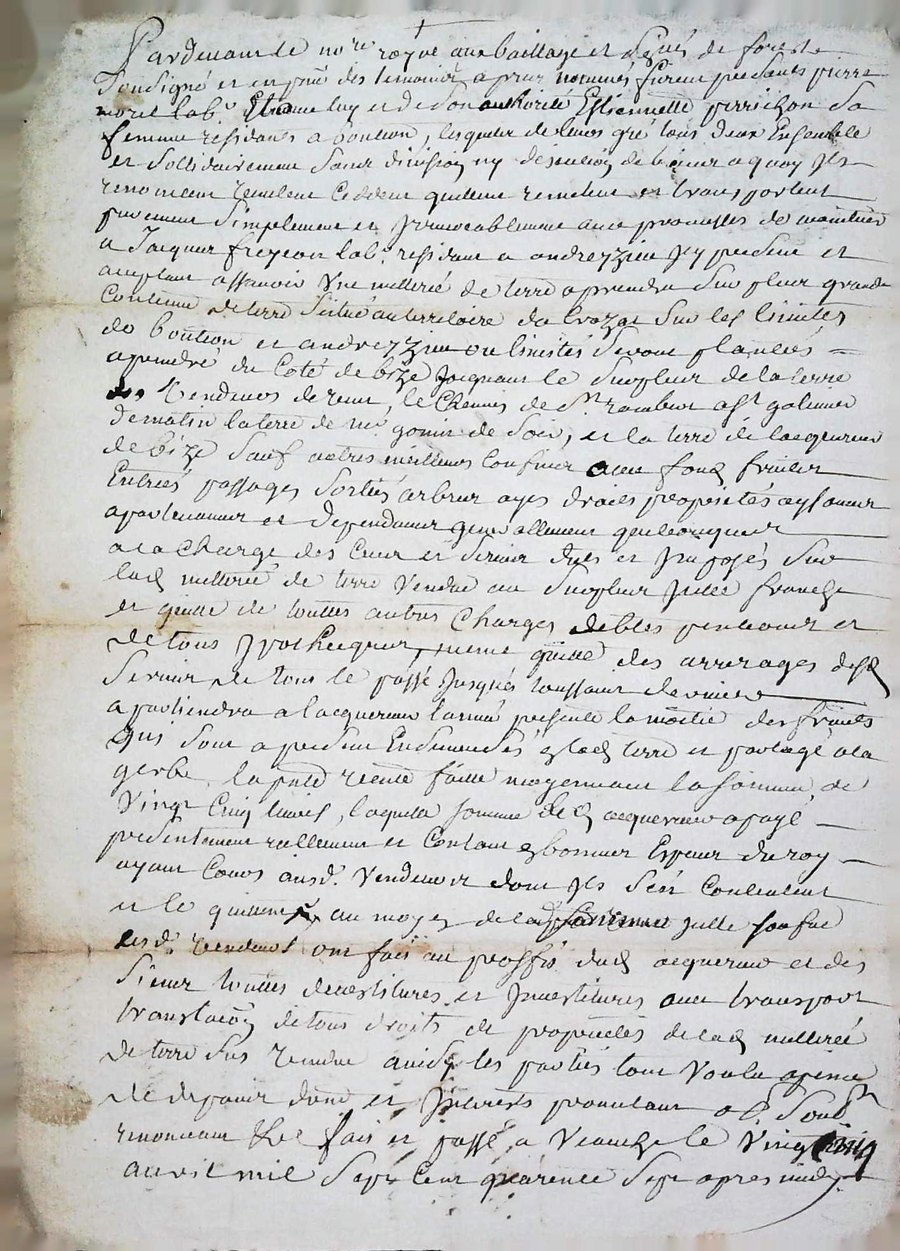 Pardevant le no.re royal aux bailliage et de forests
Soubsigné et en pnce des temoins apres nommes furent presents pierre
morel lab.r Et de luy et de son authorité Estiennette perrichon sa
femme residants a boution, lesquels de leurs gré tous deux Ensemble
et Sollidairement sans division ny discution de biens a quoy ils
renoncent vendent ceddent quittent remettent et transportent
purement Simplement et Irrevocablement avec promesses de maintenir
a Jacques lab.r residant a andrezzieu Icy present et
acceptant assavoir Une metterée de terre a prendre Sur plus grande
Contenue de terre Scitué au territoire du Sur les limites
de boution et andrezzieu ou limittes Seront plantées =
a prendre du Coté de bize Joignant le Surplus de la terre
des Vendeurs de vent, le Chemin de St rambert a St galmier
de matin la terre de Mr gonin de Soir, et la terre de lacquereur
de bize Sauf autres meilleurs Confins avec fond fruits
Entrées passages Sorties arbres ayes droits proprietés aysances
apartenances et dependances generallement quelconques
a la Charge des Cens et Servis dues et Imposés Sur
lad metterée de terre Vendue au Surplus Icelle franche
et quitte de touttes autres Charges debtes pentions et
de tous Ypotheques, meme quitte des arrerages desd
Servis de tous le passé Jusques toussaint derniere
apartiendra a lacquereur lannée presente la moitié des fruits
Qui Sont a present Ensemencés lad terre et partagé a la
gerbe, la pnte vente faitte moyennant la Somme de
Vingt Cinq livres, laquelle Somme led acquereur a payé
presentement reellement et Contant En bonnes Especes du roy
ayant Cours ausd. Vendeurs dont Ils Sen Contentent
et le quittent au moyen de lad Somme
lesd. Vendeurs ont fait au proffit dud acquereur et des
Siens touttes devestitures et Investitures avec transport
translation de tous droits de proprietés de lad metterée
de terre Sus Vendue ainsy les parties lont Voulu a peine
de depens dom et Interests promettant obl Soub
renonceant &c fait et passé a Veauche le Vingt Cinq
avril mil Sept Cent quarente Sept apres midy